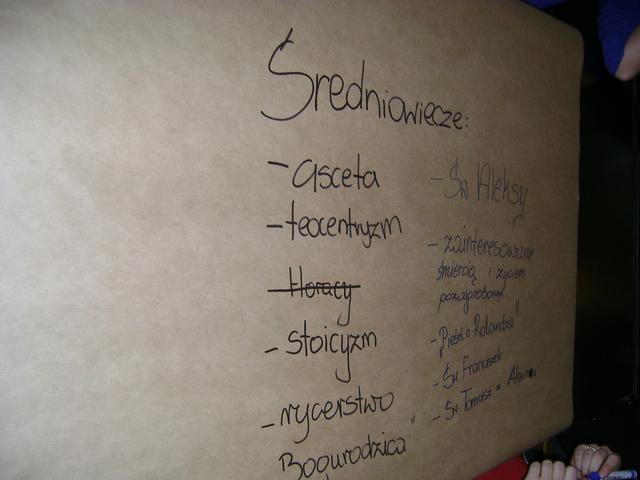 Średniowiecze:
- asceta
- teocentryzm
Horacy
- stoicyzm
- rycerstwo
Bogurodzica"
- Św Aleksy
- zainteresowanie
śmiercią i życiem
pozagrobowym
- "Pieśń o Rolandzie"
- Św. Franciszek
- Św. Tomasz z